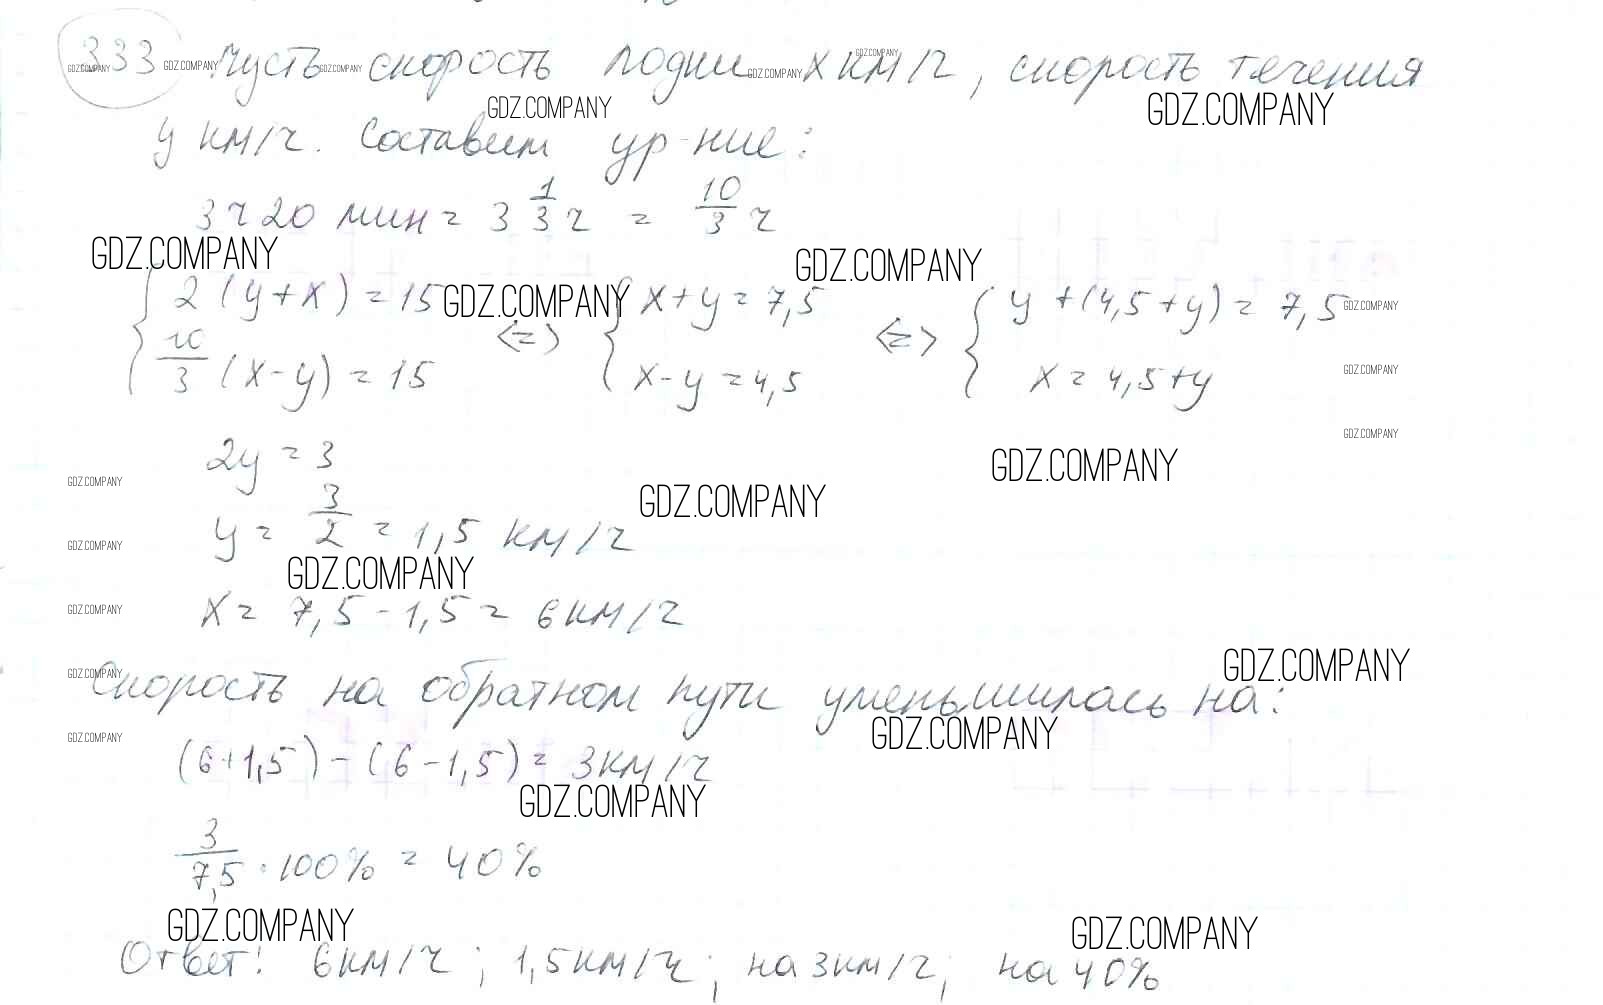 333 Пусть скорость лодки x км/ч, скорость течения
y км/ч. Составим ур-ние:
3ч 20 мин = 3 1/3 ч = 10/3 ч
{ 2(y+x) = 15 <=> { x+y = 7,5 <=> { y+(4,5+y) = 7,5
{ 10/3 (x-y) = 15 { x-y = 4,5 { x = 4,5+y
2y = 3
y = 3/2 = 1,5 км/ч
x = 7,5 - 1,5 = 6 км/ч
Скорость на обратном пути уменьшилась на:
(6+1,5) - (6-1,5) = 3 км/ч
3/7,5 · 100% = 40%
Ответ: 6 км/ч; 1,5 км/ч; на 3 км/ч; на 40%
GDZ.COMPANY